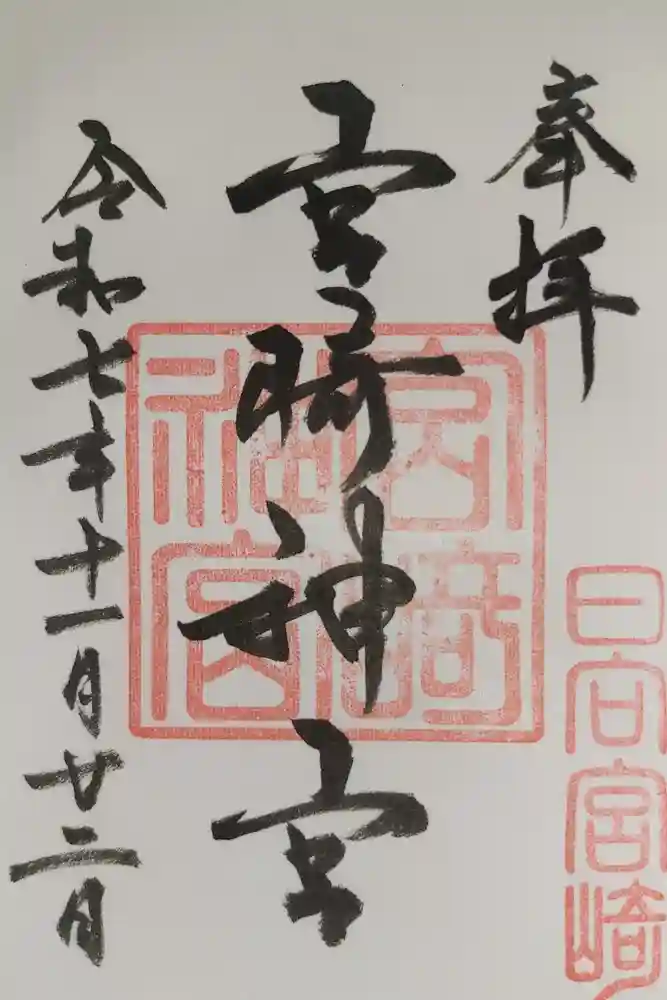 奉拝
宮崎神宮
令和七年十一月廿二日
宮崎
神宮
日向宮崎